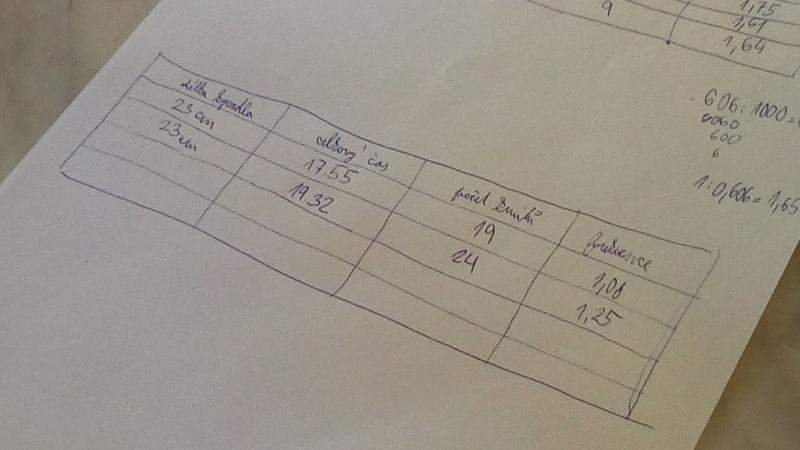 1,75
9 1,61
1,64
606 : 1000 =
6060
600
6
1:0,606 = 1,65
délka kyvadla celkový čas počet kmitů frekvence
23 cm 17.55 19 1,08
23 cm 19.32 24 1,25